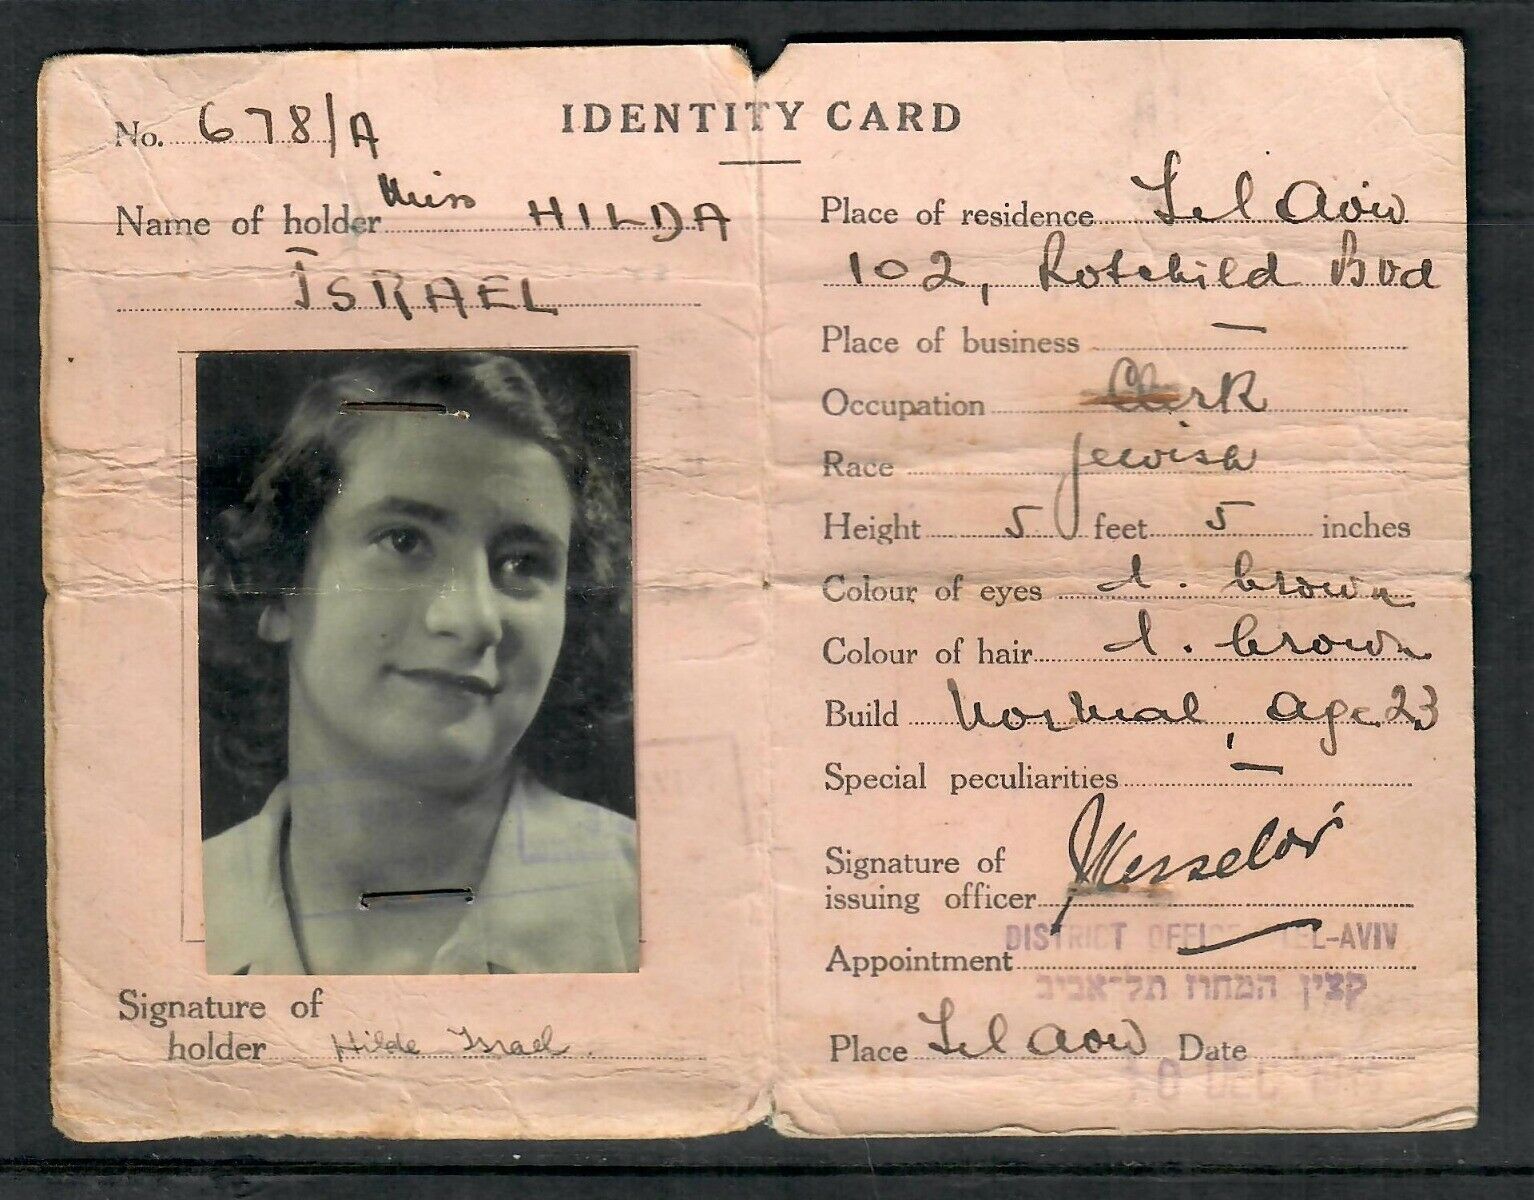 IDENTITY CARD
No. 678/A
Name of holder Miss HILDA
ISRAEL
Signature of
holder Hilde Israel.
Place of residence Tel Aviv
102, Rotchild Bvd
Place of business —
Occupation Clerk
Race Jewish
Height 5 feet 5 inches
Colour of eyes d. brown
Colour of hair d. brown
Build Normal, age 23
Special peculiarities —
Signature of
issuing officer
DISTRICT OFFICE TEL-AVIV
Appointment
קצין המחוז תל-אביב
Place Tel Aviv Date
DEC